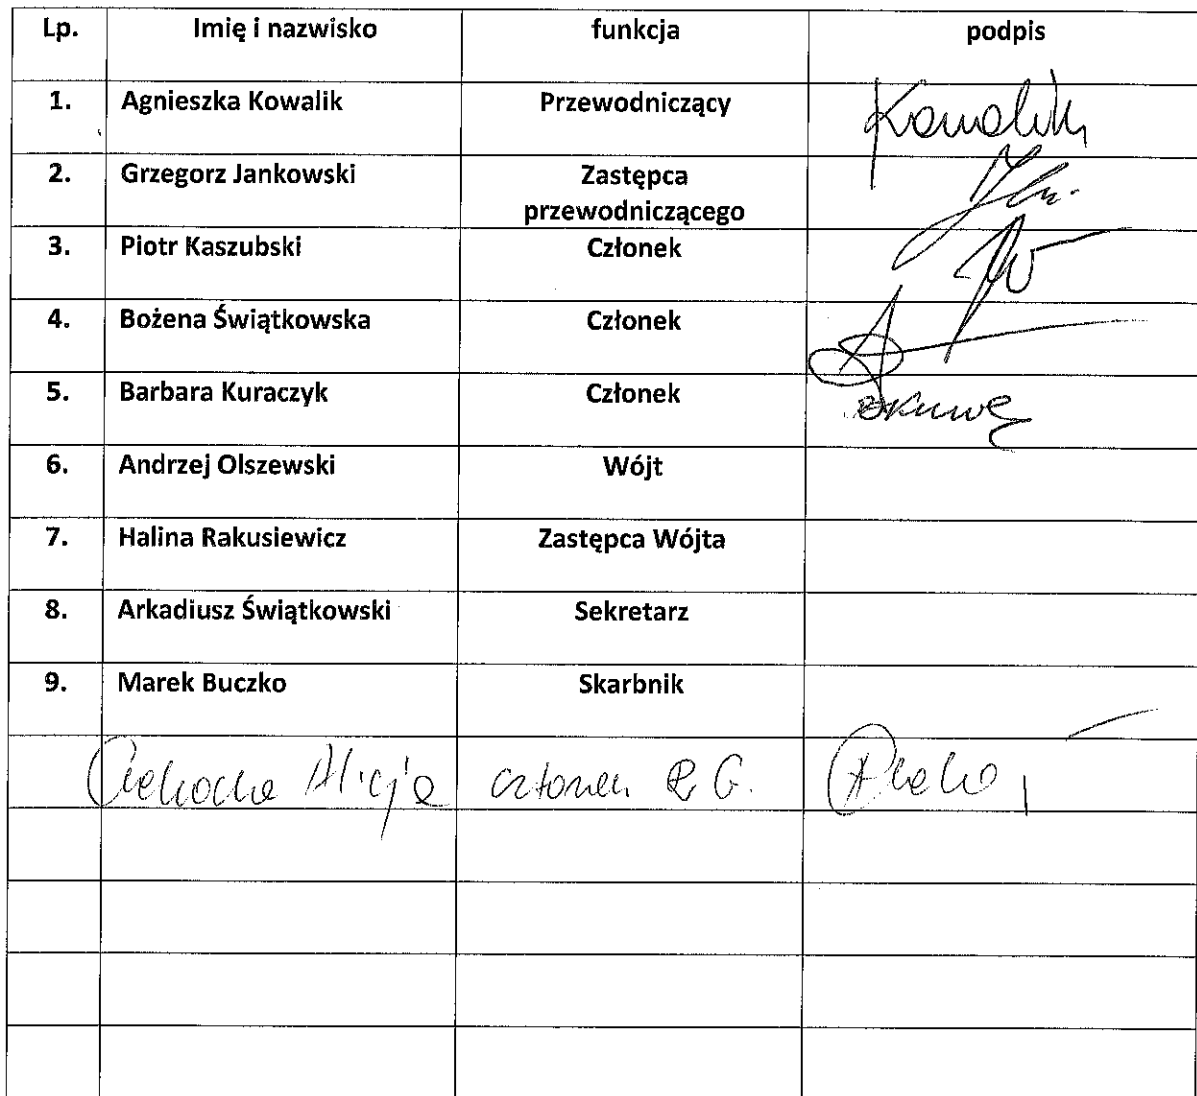 Lp. Imię i nazwisko funkcja podpis
1. Agnieszka Kowalik Przewodniczący Kowalik
2. Grzegorz Jankowski Zastępca
przewodniczącego
3. Piotr Kaszubski Członek
4. Bożena Świątkowska Członek
5. Barbara Kuraczyk Członek
6. Andrzej Olszewski Wójt
7. Halina Rakusiewicz Zastępca Wójta
8. Arkadiusz Świątkowski Sekretarz
9. Marek Buczko Skarbnik
Alicja członek R G.